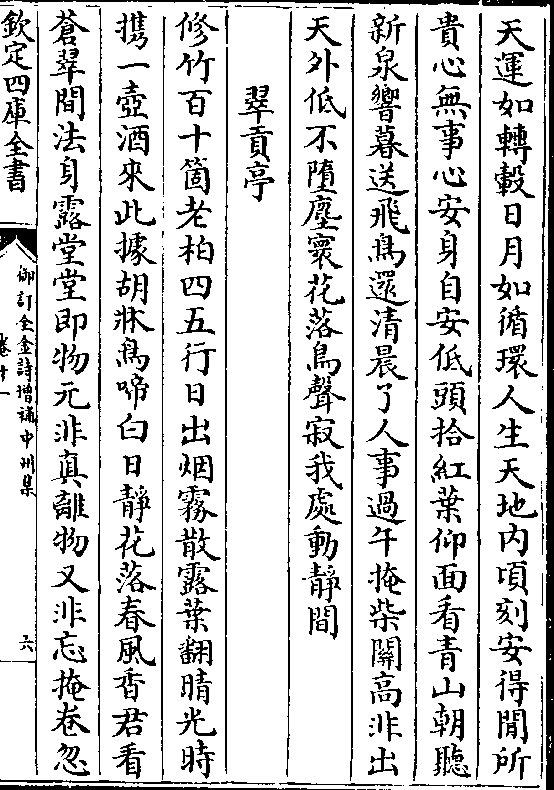 天運如轉轂日月如循環人生天地内頃刻安得閒所
貴心無事心安身自安低頭拾紅葉仰面看青山朝聽
新泉響暮送飛鳥還清晨了人事過午掩柴關高非出
天外低不墮塵寰花落鳥聲寂我處動靜間
翠貢亭
修竹百十箇老柏四五行日出烟霧散露葉翻晴光時
攜一壺酒來此據胡牀鳥啼白日靜花落春風香君看
蒼翠間法身露堂堂即物元非真離物又非忘掩卷忽
欽定四庫全書
御訂全金詩增補中州集
卷十一
六